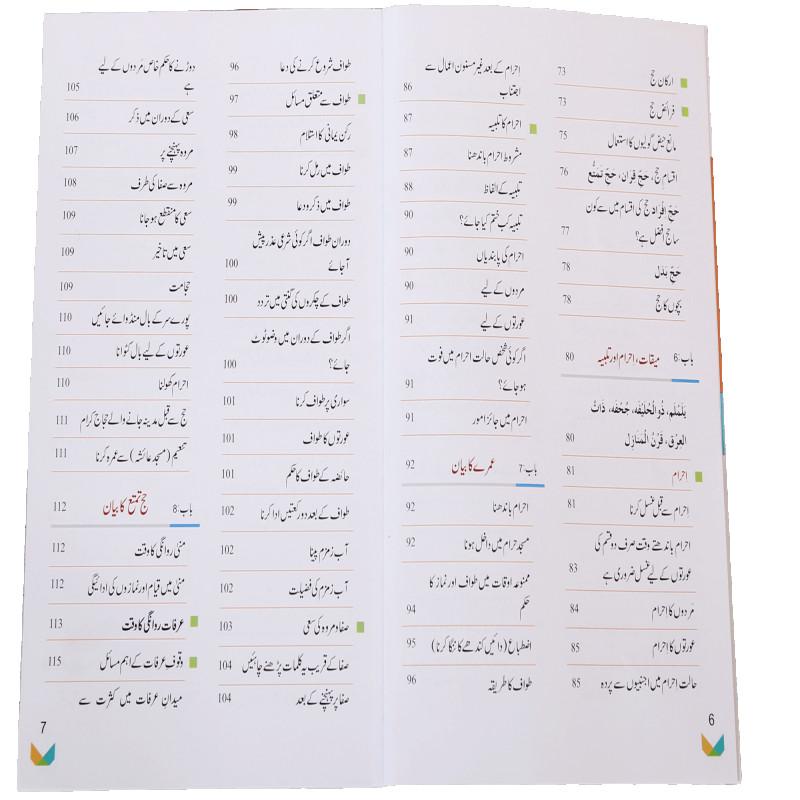 ارکان حج 73
فرائض حج 73
مانع حیض گولیوں کا استعمال 75
اقسام حج، حَجّ قِرَان، حَجّ تَمَتُّع 76
حَجّ اِفْرَاد حج کی اقسام میں سے کون
سا حج افضل ہے؟ 77
حَجّ بَدَل 78
بچوں کا حج 78
باب:6 میقات، احرام اور تلبیہ 80
یَلَمْلَم، ذُوالْحُلَیْفَه، جُحْفَه، ذَاتُ
الْعِرْق، قَرْنُ الْمَنَازِل 80
احرام 81
احرام سے قبل غسل کرنا 81
احرام باندھتے وقت صرف دو قسم کی
عورتوں کے لیے غسل ضروری ہے 83
مَردوں کا احرام 84
عورتوں کا احرام 85
حالت احرام میں اجنبیوں سے پردہ 85
اِحرام کے بعد غیر مسنون اعمال سے
اجتناب 86
احرام کا تلبیہ 87
مشروط احرام باندھنا 87
تلبیہ کے الفاظ 88
تلبیہ کب ختم کیا جائے؟ 90
احرام کی پابندیاں 90
مردوں کے لیے 90
عورتوں کے لیے 91
اگر کوئی شخص حالت احرام میں فوت
ہو جائے؟ 91
احرام میں جائز امور 91
باب:7 عمرے کا بیان 92
احرام باندھنا 92
مسجد حرام میں داخل ہونا 92
ممنوعہ اوقات میں طواف اور نماز کا
حکم 94
اضطباع (دائیں کندھے کا ننگا کرنا) 95
طواف کا طریقہ 96
6
طواف شروع کرنے کی دعا 96
طواف سے متعلق مسائل 97
رکن یمانی کا استلام 98
طواف میں رمل کرنا 99
طواف میں ذکر و دعا 99
دوران طواف اگر کوئی شرعی عذر پیش
آجائے 100
طواف کے چکروں کی گنتی میں تردد 100
اگر طواف کے دوران میں وضو ٹوٹ
جائے؟ 100
سواری پر طواف کرنا 101
عورتوں کا طواف 101
حائضہ کے طواف کا حکم 101
طواف کے بعد دو رکعتیں ادا کرنا 102
آب زمزم پینا 102
آب زمزم کی فضیات 102
صفا و مروہ کی سعی 103
صفا کے قریب یہ کلمات پڑھنے چاہئیں 104
صفا پر پہنچنے کے بعد 104
دوڑنے کا حکم خاص مَردوں کے لیے
ہے 105
سعی کے دوران میں ذکر 106
مروہ پہنچنے پر 107
مروہ سے صفا کی طرف 108
سعی کا منقطع ہو جانا 109
سعی میں تاخیر 109
حجامت 109
پورے سر کے بال منڈوائے جائیں 110
عورتوں کے لیے بال کٹوانا 110
احرام کھولنا 110
حج سے قبل مدینہ جانے والے حجاج کرام 111
تنعیم (مسجد عائشہ) سے عمرہ کرنا 111
باب:8 حج تمتع کا بیان 112
منیٰ روانگی کا وقت 112
منیٰ میں قیام اور نمازوں کی ادائیگی 112
عرفات روانگی کا وقت 113
وقوف عرفات کے اہم مسائل 115
میدان عرفات میں کثرت سے
7